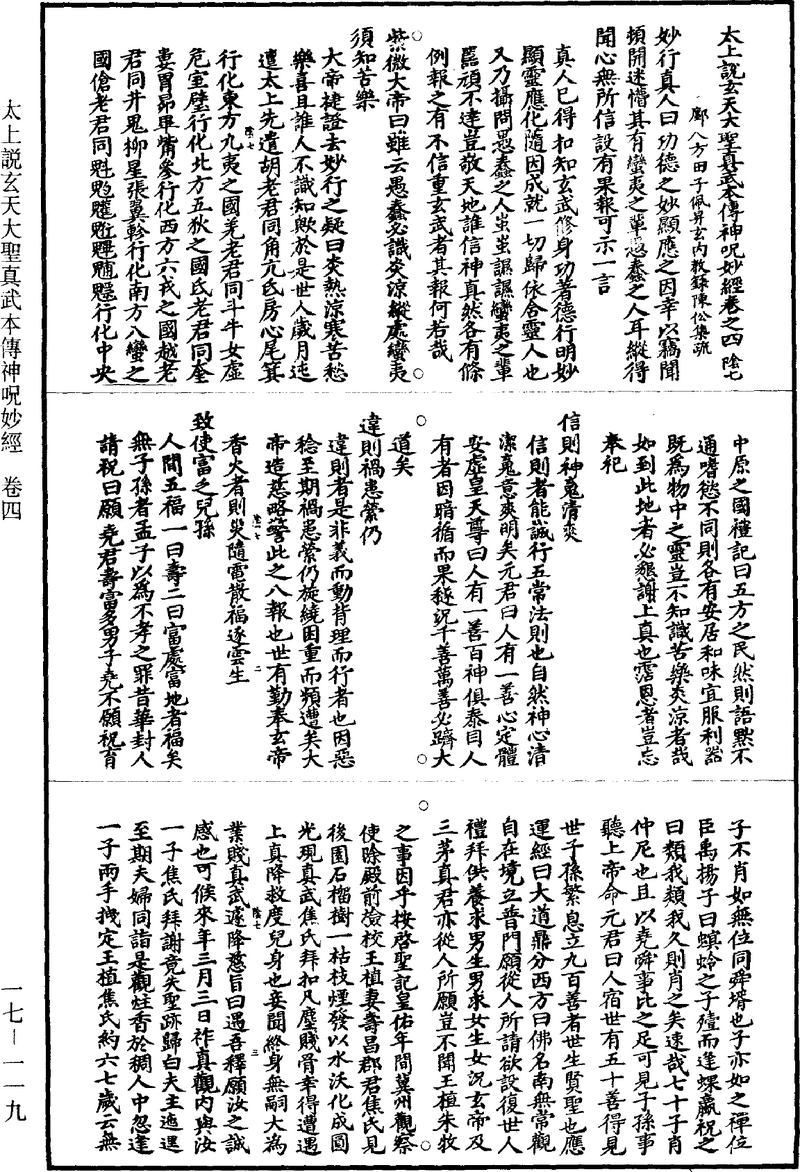 太上說玄天大聖真武本傳神呪妙經卷之四 陰七
鄽八方田子佩昇玄內教錄陳伀集疏
妙行真人曰功德之妙顯應之因幸以竊聞
頓開迷懵其有蠻夷之輩愚蠢之人耳縱得
聞心無所信設有果報可示一言
真人已得扣知玄武修身功著德行明妙
顯靈應化隨因成就一切歸依含靈人也
又乃攝問愚蠢之人虫虫譅譅蠻夷之輩
嚚頑不達豈敬天地誰信神真然各有條
例報之有不信重玄武者其報何若哉
紫微大帝曰雖云愚蠢必識炎涼縱處蠻夷
須知苦樂
大帝捷證去妙行之疑曰炎熱涼寒苦愁
樂喜且誰人不識知歟於是世人歲月迍
遭太上先遣胡老君同角亢氐房心尾箕
行化東方九夷之國羌老君同斗牛女虛
危室壁行化北方五狄之國氐老君同奎
婁胃昴畢觜參行化西方六戎之國越老
君同井鬼柳星張翼軫行化南方八蠻之
國傖老君同魁行化中央
中原之國禮記曰五方之民然則語黙不
通嗜慾不同則各有安居和味宜服利器
既為物中之靈豈不知識苦樂炎涼者哉
如到此地者必懇謝上真也霑恩者豈忘
奉祀
信則神䰟清爽
信則者能誠行五常法則也自然神心清
潔䰟意爽明矣元君曰人有一善心定體
安虛皇天尊曰人有一善百神俱泰目人
有者因暗循而果穟況千善萬善必躋大
道矣
違則禍患縈仍
違則者是非義而動背理而行者也因惡
稔至期禍患縈仍旋繞困重而頻遭矣大
帝造慈略警此之八報也世有勤奉玄帝
香火者則災隨電散福逐雲生
致使富之兒孫
人間五福一曰壽二曰富處富地者福矣
無子孫者孟子以為不孝之罪昔華封人
請祝曰願堯君壽富多男子堯不願祝育
子不肖如無位同舜壻也子亦如之禪位
臣禹揚子曰螟蛉之子殪而逢蜾蠃祝之
曰類我類我久則肖之矣速哉七十子肖
仲尼也且以堯舜事比之足可見子孫事
聽上帝命元君曰人宿世有五十善得見
世子孫繁息立九百善者世生賢聖也應
運經曰大道鼎分西方曰佛名南無常觀
自在境立普門願從人所請欲設復世人
禮拜供養求男生男求女生女況玄帝及
三茅真君亦從人所願豈不聞王植朱牧
之事因乎按啓聖記皇佑年間冀州觀察
使睑殿前檢校王植妻壽昌郡君焦氏見
後園石榴樹一枯枝煙發以水沃化成圓
光現真武焦氏拜扣凡塵賤骨幸得遭遇
上真降救度兒身也妾聞終身無嗣大為
業賤真武遂降慈旨曰遇吾釋願汝之誠
感也可候來年三月三日祚真觀內與汝
一子焦氏拜謝竟失聖跡歸白夫主迤邐
至期夫婦同詣是觀炷香於稠人中忽逢
一子兩手拽定王植焦氏約六七歲云無
太上說玄天大聖真武本傳神呪妙經 卷四
一七－一一九